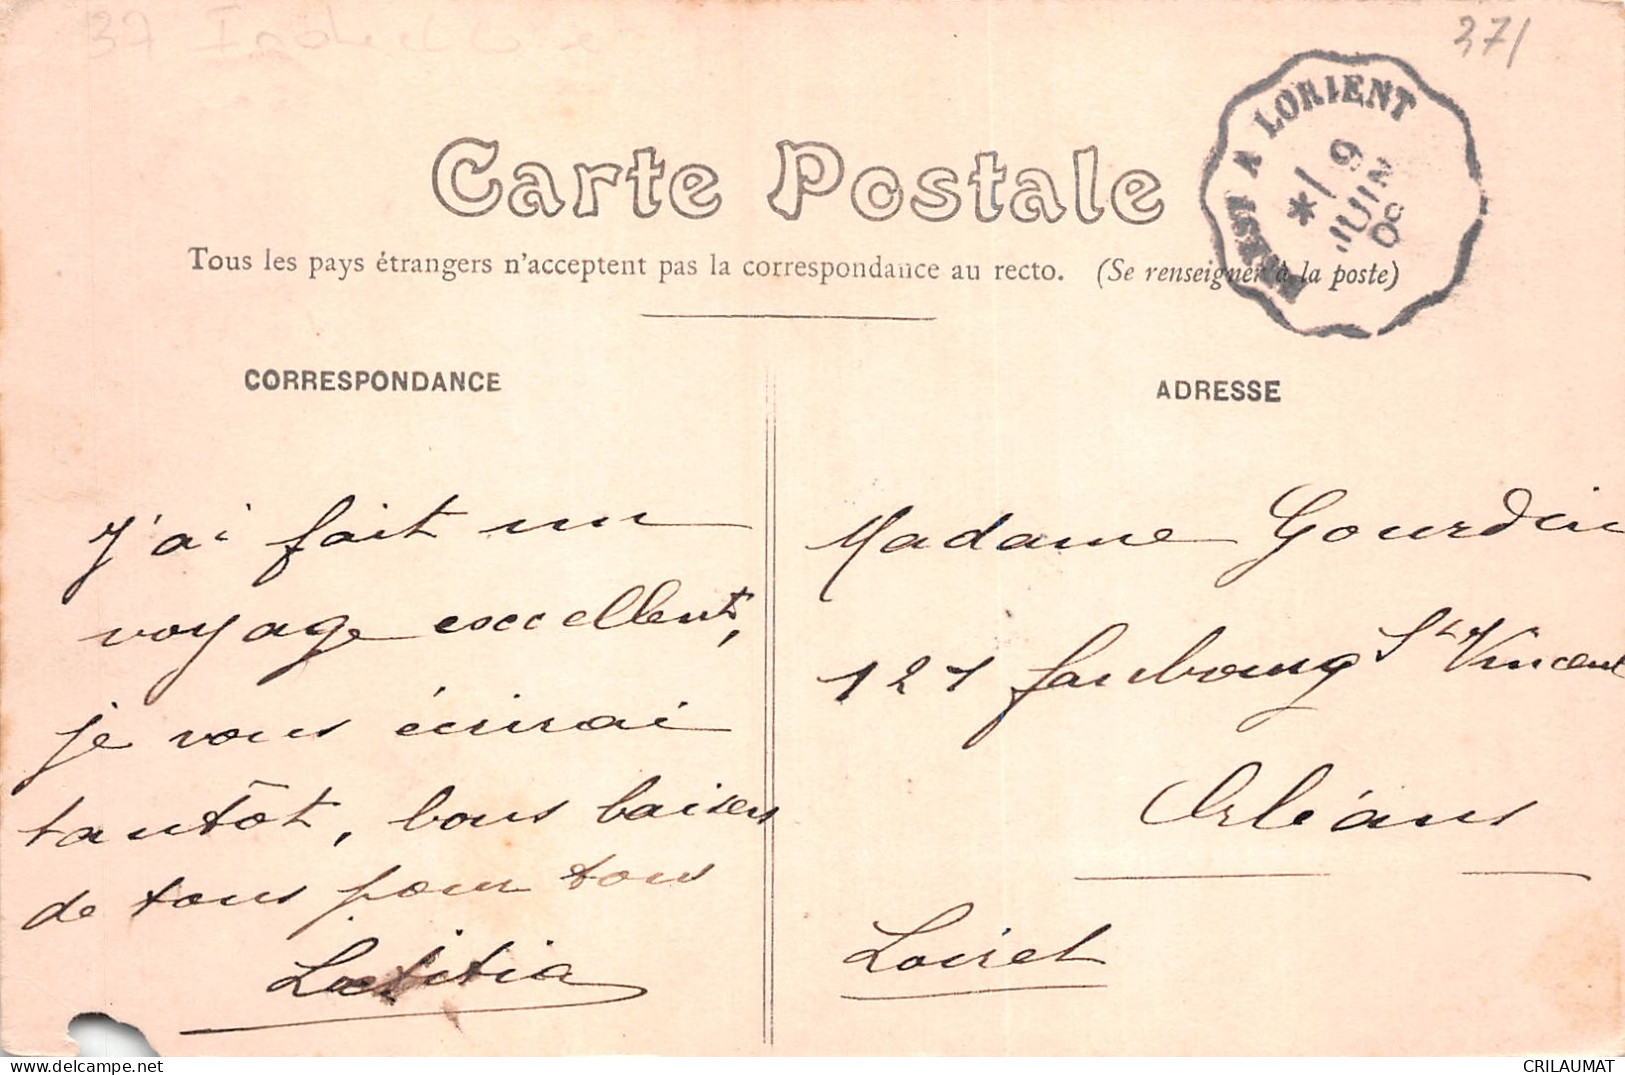 37 Indre et Loire
37/
BREST A LORIENT
*/ 9
JUIN
08
Carte Postale
Tous les pays étrangers n'acceptent pas la correspondance au recto. (Se renseigner à la poste)
CORRESPONDANCE
J'ai fait un
voyage excellent,
je vous écrirai
tantôt, bons baisers
de tous pour tous
Laetitia
ADRESSE
Madame Gourdin
127 faubourg St Vincent
Orléans
Loiret
CRILAUMAT